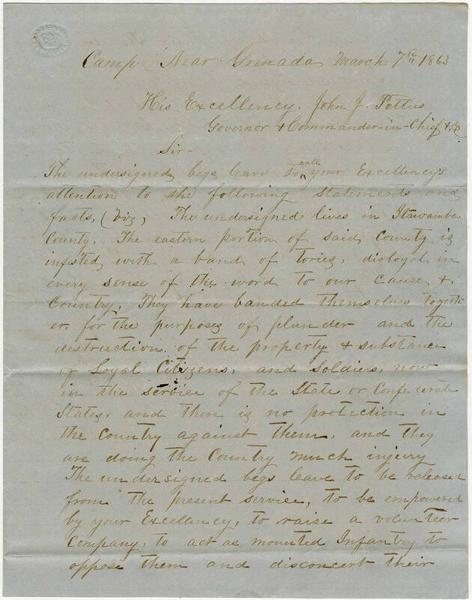 Camp Near Grenada March 7th 1863
His Excellency. John J. Pettus
Governor & Commander-in-Chief &c
Sir-
The undersigned begs leave to call your Excellency's
attention to the following statements and
facts, (viz, The undersigned lives in Itawamba
County. The eastern portion of said County is
infested with a band of tories, disloyal in
every sense of the word to our Cause &
Country. They have banded themselves togeth
er for the purposes of plunder and the
destruction of the property & substance
of Loyal Citizens, and soldiers, now
in the service of the State or Confederate
States, and there is no protection in
the Country against them, and they
are doing the Country much injury
The undersigned begs leave to be released
from the present service, to be empowered
by your Excellency, to raise a volunteer
Company, to act as mounted Infantry to
oppose them and disconcert their